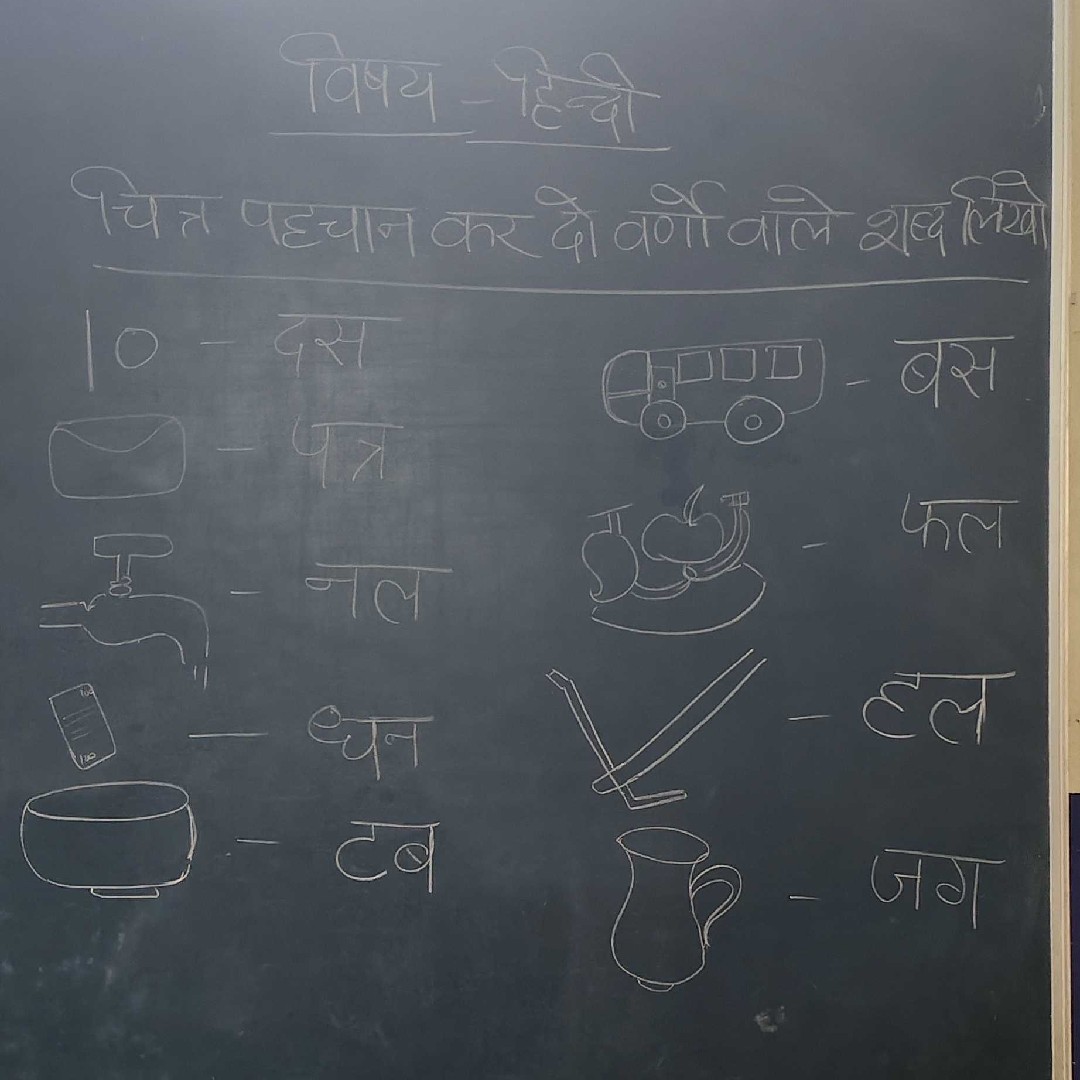 विषय - हिन्दी
चित्र पहचान कर दो वर्णों वाले शब्द लिखो
10 - दस
- बस
- पत्र
- फल
- नल
- हल
100 100 - धन
- टब
- जग